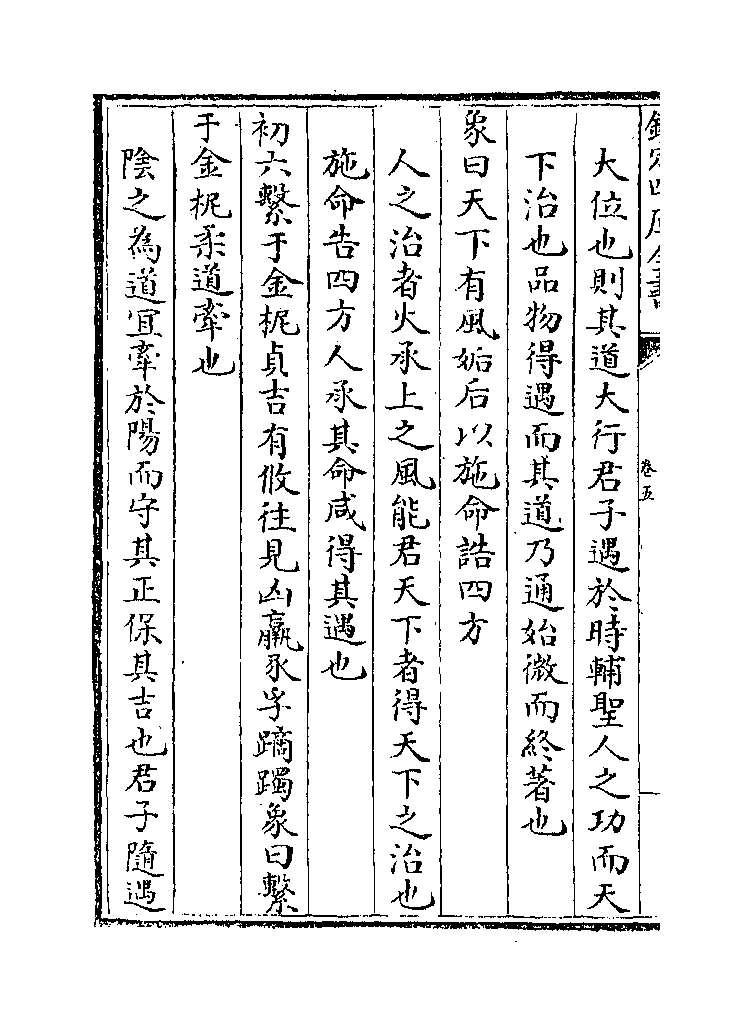 欽定四庫全書
卷五
大位也則其道大行君子遇於時輔聖人之功而天
下治也品物得遇而其道乃通始微而終著也
象曰天下有風姤后以施命誥四方
人之治者火承上之風能君天下者得天下之治也
施命告四方人承其命咸得其遇也
初六繫于金柅貞吉有攸往見凶羸豕孚蹢躅象曰繫
于金柅柔道牽也
陰之為道宜牽於陽而守其正保其吉也君子隨遇